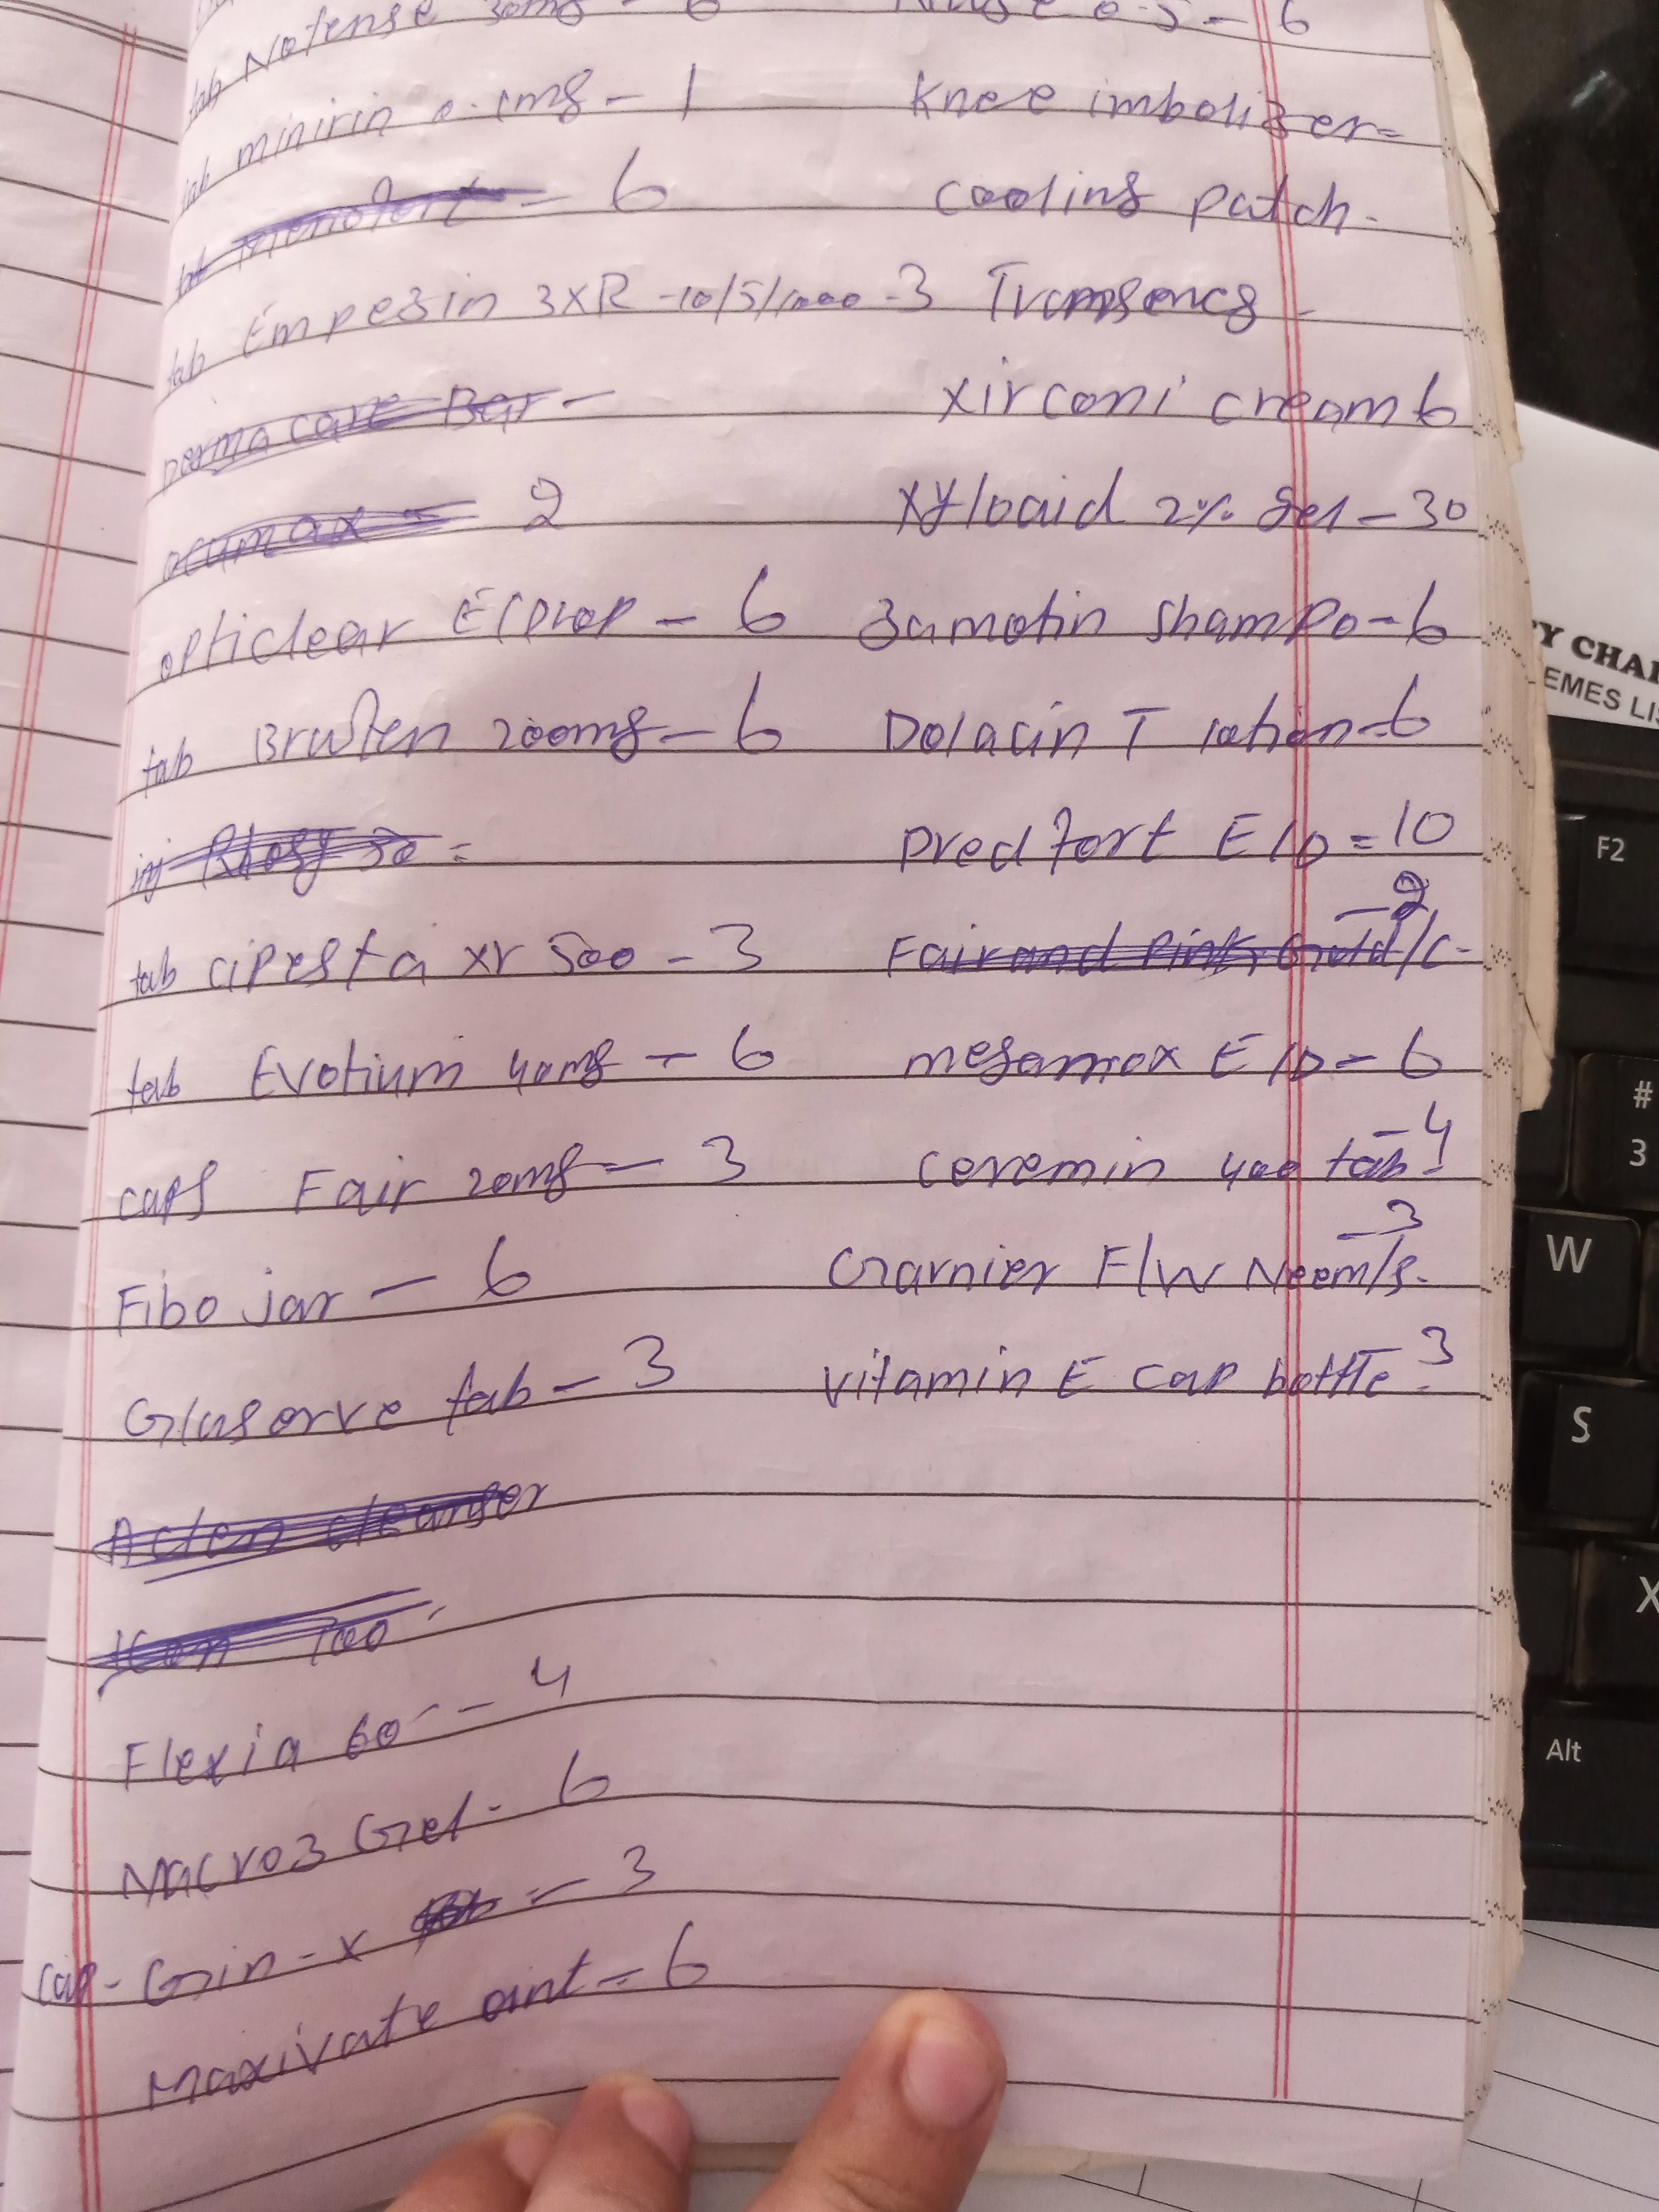 tab Notense 30mg - 6
0.5 - 6
tab minirin 0.1mg - 1
Knee imbolizer=
6
cooling patch -
tab Empezin 3XR -10/5/1000 -3
xirconi cream 6
Derma care Bar -
ocumax - 2
xyloaid 2% Gel - 30
opticlear E/Drop - 6
Zamotin shampo - 6
tab Brufen 200mg - 6
Dolacin T lotion - 6
inj
Pred fort E/D = 10
tab cipesta xr 500 - 3
Fair and Pink Gold/C - 2
tab Evotium 40mg - 6
megamox E/D - 6
caps Fair 20mg - 3
ceremin 400 tab - 4
Fibo jar - 6
Garnier F/W Neem/s - 3
Gluserve tab - 3
vitamin E cap bottle - 3
Aclen cleanser
Flexia 60 - 4
Macroz Gel - 6
cap - Gin - x - 3
Maxivate oint - 6